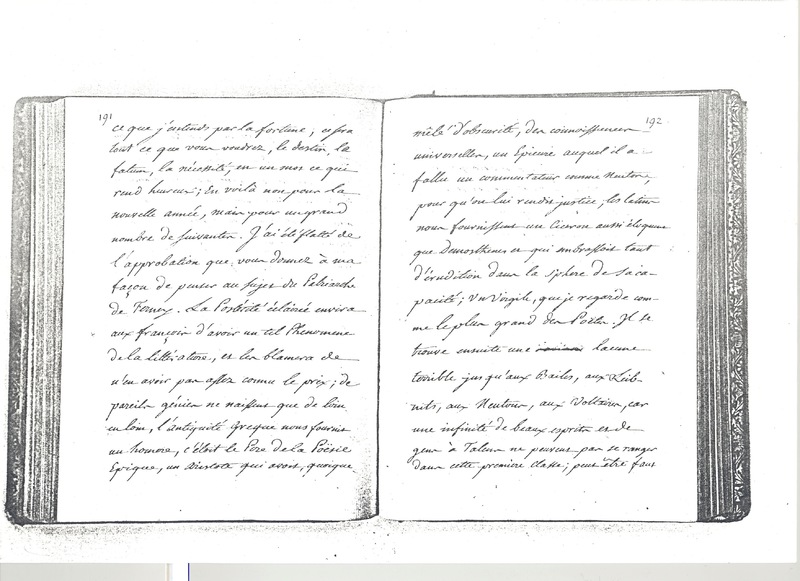 191
ce que j'entends par la fortune, ce sera
tout ce que vous voudrez, le destin, la
fatum, la nécessité, en un mot ce qui
rend heureux; En voilà non pour la
nouvelle année, mais pour un grand
nombre de suivantes. J'ai été flatté de
l'approbation que vous donnez à ma
façon de penser au sujet du Patriarche
de Ferney. La Postérité éclairée enviera
aux françois d'avoir un tel Phenomene
de la littérature, et les blamera de
n'en avoir pas assez connu le prix; de
pareils génies ne naissent que de loin
en loin, l'antiquité Grecque nous fournit
un homere, c'étoit le Pere de la Poësie
Epique, un Aristote qui avoit, quoique
192
mêlé d'obscurité, des connoissances
universelles, un Epicure auquel il a
fallu un commentateur comme Neuton,
pour qu'on lui rendit justice; les latins
nous fournissent un Ciceron aussi éloquent
que Demosthene et qui embrassoit tant
d'érudition dans la sphere de sa ca-
pacité; Un Virgile, que je regarde com-
me le plus grand des Poëtes. Il se
trouve ensuite une lacune
terrible jusqu'aux Bailes, aux Leib-
nits, aux Neutons, aux Voltaires, car
une infinité de beaux esprits et de
gens à Talens ne peuvent pas se ranger
dans cette premiere classe; peut être faut